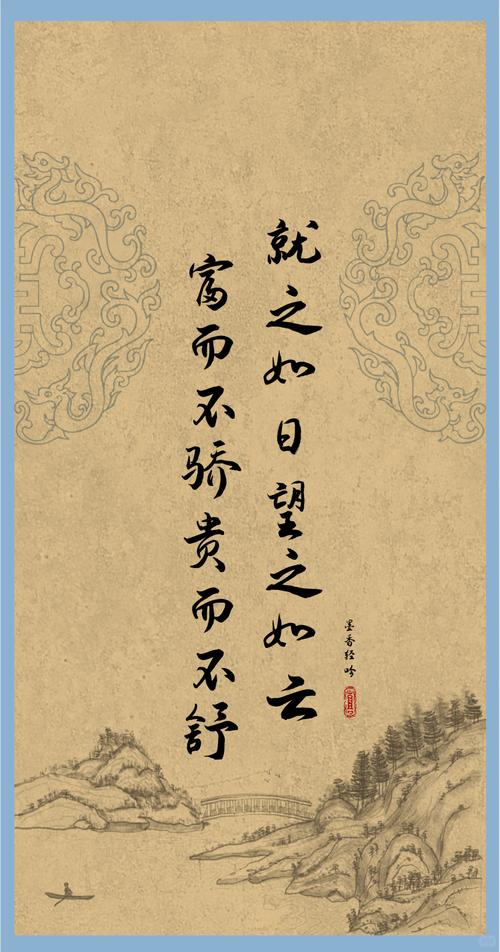 就之如日望之如云
富而不骄贵而不舒
墨香轻吟